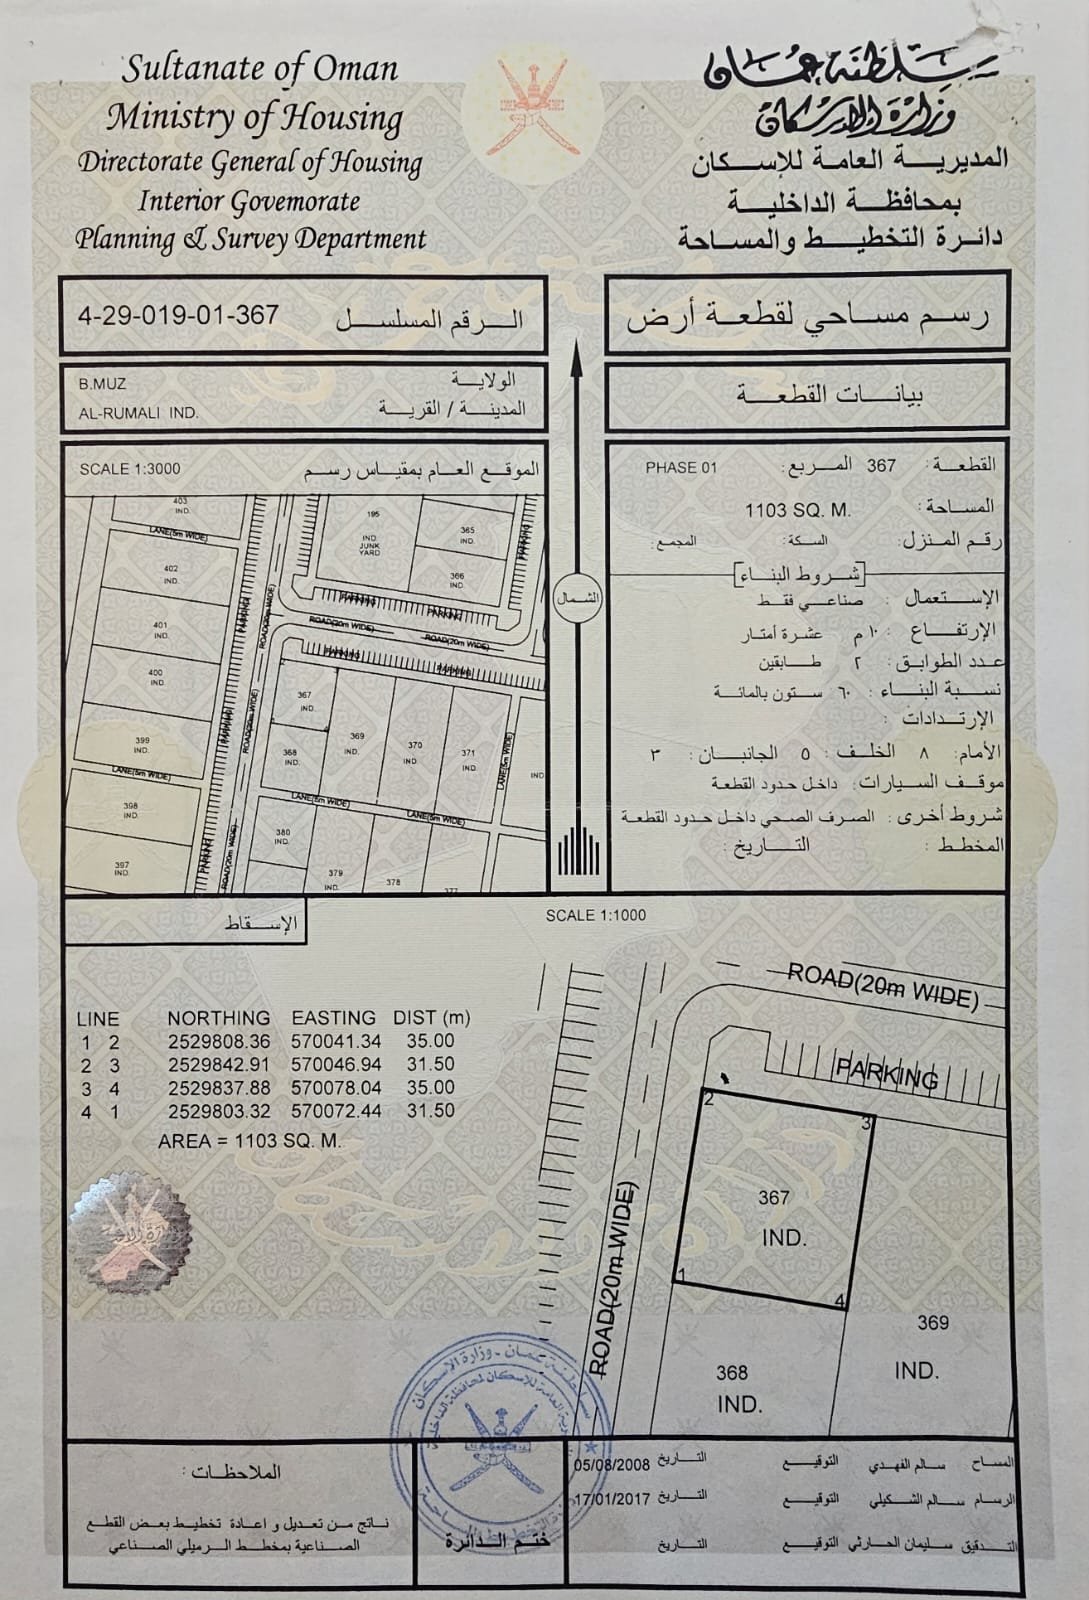 Sultanate of Oman
Ministry of Housing
Directorate General of Housing
Interior Govemorate
Planning & Survey Department
سلطنة عمان
وزارة الإسكان
المديرية العامة للإسكان
بمحافظة الداخلية
دائرة التخطيط والمساحة
4-29-019-01-367 الرقم المسلسل
رسم مساحي لقطعة أرض
B.MUZ الولاية
AL-RUMALI IND. المدينة / القرية
بيانات القطعة
SCALE 1:3000 الموقع العام بمقياس رسم
القطعة: 367 المربع: PHASE 01
المساحة: 1103 SQ. M.
رقم المنزل: السكة: المجمع:
[شروط البناء]
الإستعمال : صناعي فقط
الإرتفاع : ١٠ م عشرة أمتار
عدد الطوابق: ٢ طابقين
نسبة البناء : ٦٠ ستون بالمائة
الإرتدادات :
الأمام: ٨ الخلف: ٥ الجانبان: ٣
موقف السيارات: داخل حدود القطعة
شروط أخرى : الصرف الصحي داخل حدود القطعة
المخطط : التاريخ :
الشمال
403
IND.
LANE(5m WIDE)
402
IND.
401
IND.
400
IND.
399
IND.
LANE(5m WIDE)
398
IND.
397
IND.
195
IND
JUNK
YARD
365
IND.
366
IND.
PARKING
PARKING
PARKING
PARKING
PARKING
PARKING
PARKING
PARKING
ROAD(20m WIDE)
ROAD(20m WIDE)
ROAD(20m WIDE)
ROAD(20m WIDE)
ROAD(20m WIDE)
367
IND.
368
IND.
369
IND.
370
IND.
371
IND.
IND
LANE(5m WIDE)
LANE(5m WIDE)
LANE(5m WIDE)
380
IND.
379
IND.
378
377
الإسقاط
SCALE 1:1000
LINE NORTHING EASTING DIST (m)
1 2 2529808.36 570041.34 35.00
2 3 2529842.91 570046.94 31.50
3 4 2529837.88 570078.04 35.00
4 1 2529803.32 570072.44 31.50
AREA = 1103 SQ. M.
ROAD(20m WIDE)
PARKING
ROAD(20m WIDE)
2
3
1
4
367
IND.
368
IND.
369
IND.
الملاحظات :
ناتج من تعديل و اعادة تخطيط بعض القطع
الصناعية بمخطط الرميلي الصناعي
ختم الدائرة
المساح سالم الفهدي التوقيع التاريخ 05/08/2008
الرسام سالم الشكيلي التوقيع التاريخ 17/01/2017
التدقيق سليمان الحارثي التوقيع التاريخ
سلطنة عمان - وزارة الإسكان